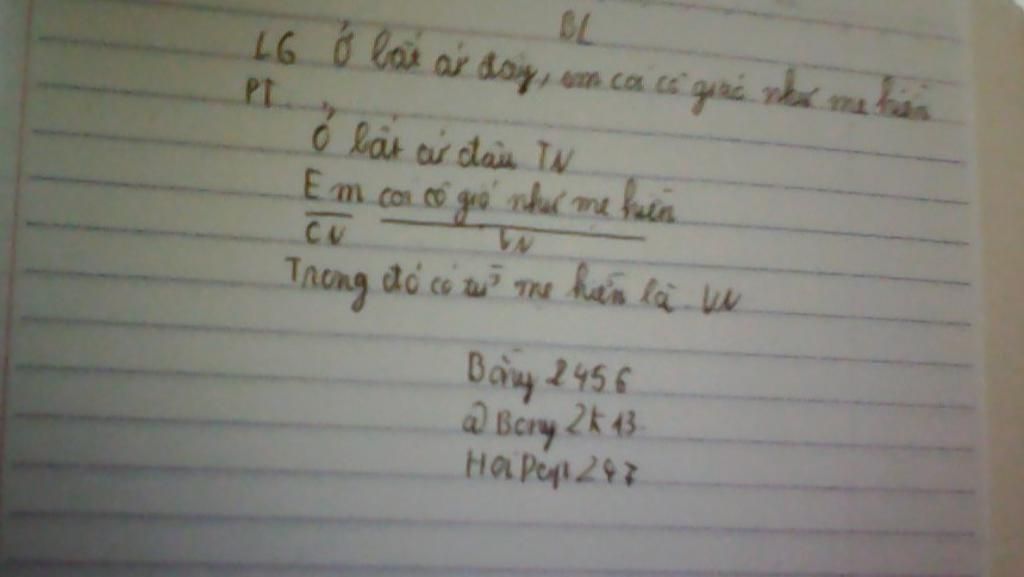 BL
LG Ở bất cứ đây, em coi cô giáo như mẹ hiền
PT "
Ở bất cứ đâu TN
Em coi cô gió như mẹ hiền
CN VN
Trong đó có từ mẹ hiền là VN
2456
@ Bony 2k13
Hoi Pcp 247